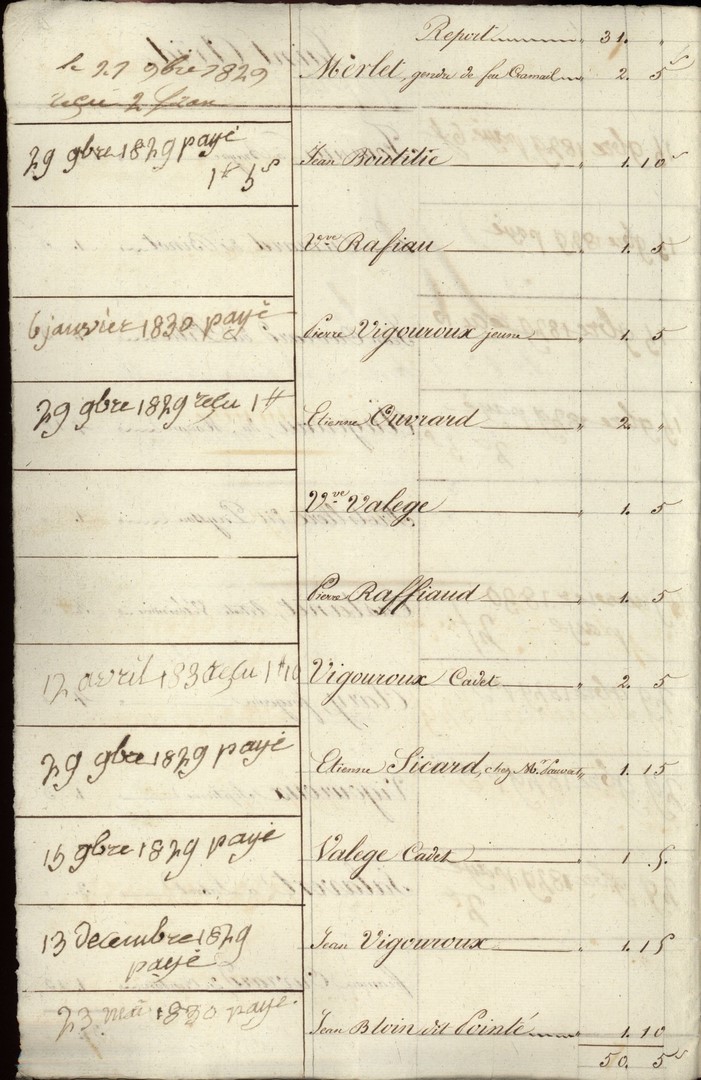 Report 31. "
le 27 9bre 1829 Merlet, gendre de feu Cramail 2. 5 s
reçu 2 fran
29 9bre 1829 payé Jean Boutitie " 1. 10 s
1# 5s
Veuve Rafiau " 1. 5
6 janvier 1830 payé Pierre Vigouroux jeune " 1. 5
29 9bre 1829 reçu 1# Etienne Ouvrard " 2. "
Vve Valege " 1. 5
Pierre Raffiaud " 1. 5
12 avril 1830 reçu 1# 10 Vigouroux Cadet " 2. 5
29 9bre 1829 payé Etienne Sicard, chez Mr " 1. 15
15 9bre 1829 payé Valege Cadet " 1 5.
13 decembre 1829 Jean Vigouroux " 1. 15
payé
23 mai 1830 payé. Jean Bloin dit Pointé " 1. 10
50. 5 s